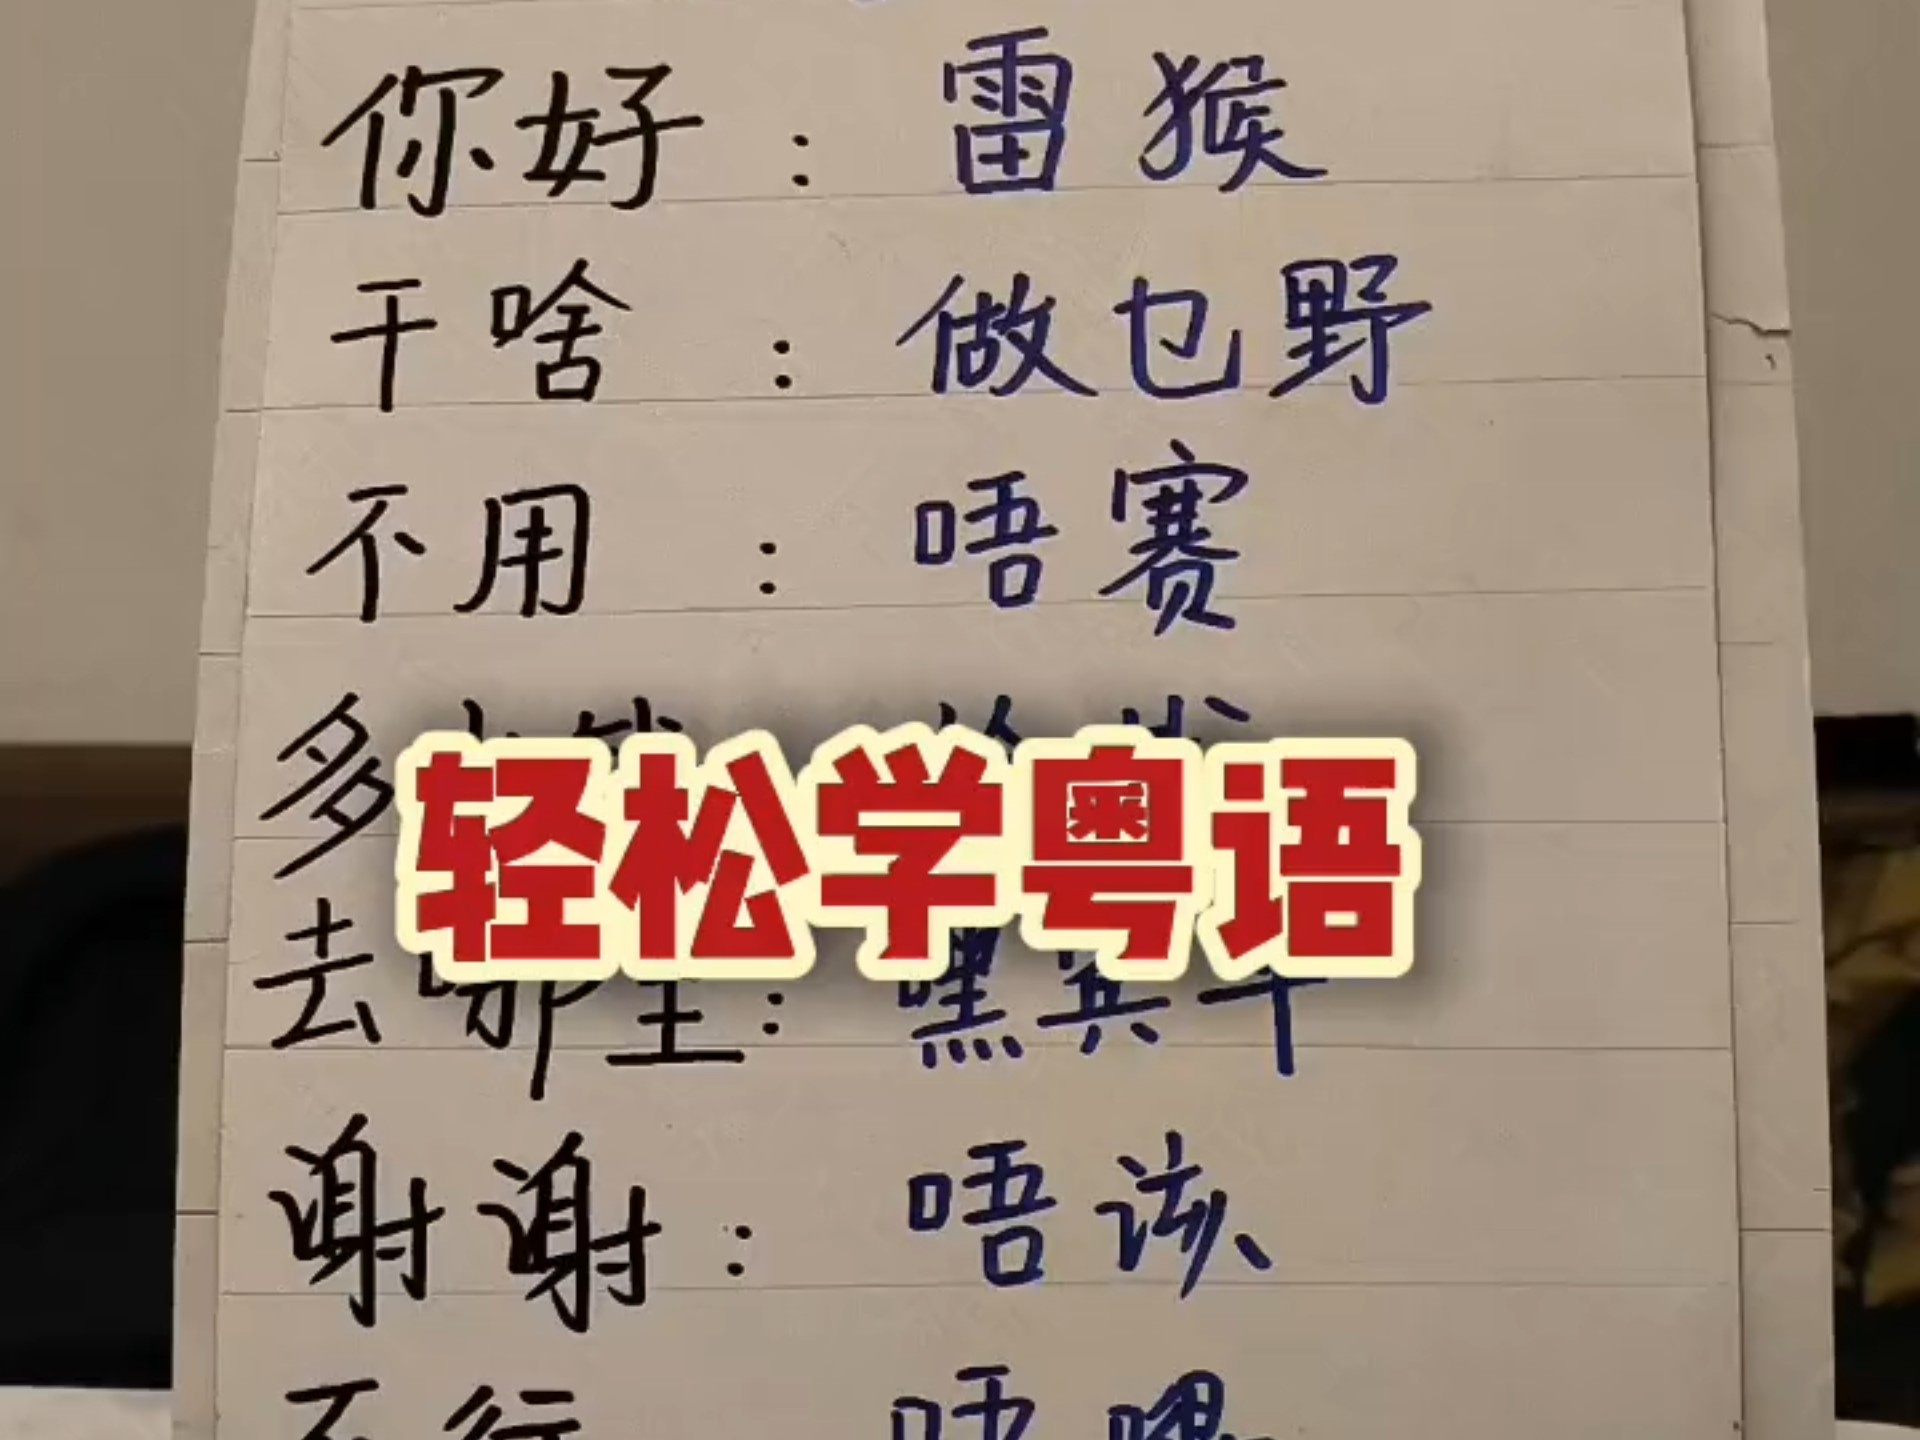 你好：雷猴
干啥：做乜野
不用：唔赛
多
轻松学粤语
去哪里：嘿宾
谢谢：唔该
不行 唔